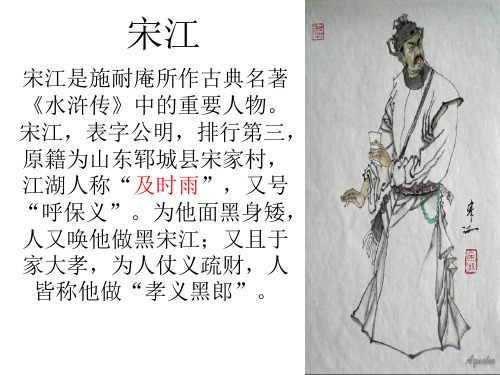 宋江
宋江是施耐庵所作古典名著
《水浒传》中的重要人物。
宋江，表字公明，排行第三，
原籍为山东郓城县宋家村，
江湖人称“及时雨”，又号
“呼保义”。为他面黑身矮，
人又唤他做黑宋江；又且于
家大孝，为人仗义疏财，人
皆称他做“孝义黑郎”。
宋江
Aquatee